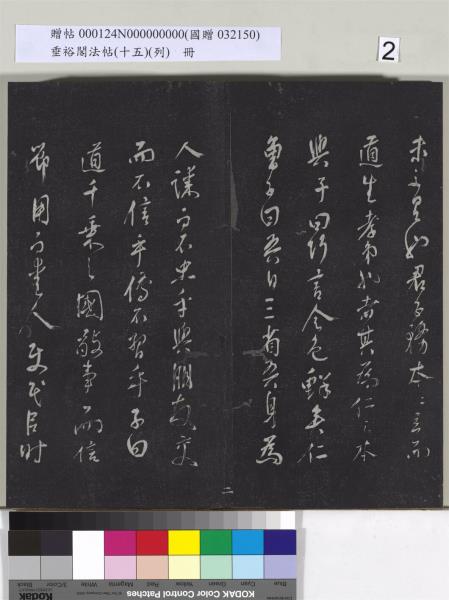 贈帖 000124N000000000(國贈 032150)
垂裕閣法帖(十五)(列) 冊
2
未之有也君子務本〻立而
道生孝弟也者其為仁〻本
與子曰巧言令色鮮矣仁
曾子曰吾日三省吾身為
人謀而不忠乎與朋友交
而不信乎傳不習乎子曰
道千乘之國敬事而信
節用而愛人使民以時
二
Blue Cyan Green Yellow Red Magenta White 3/Color Black
KODAK Color Control Patches
Kodak